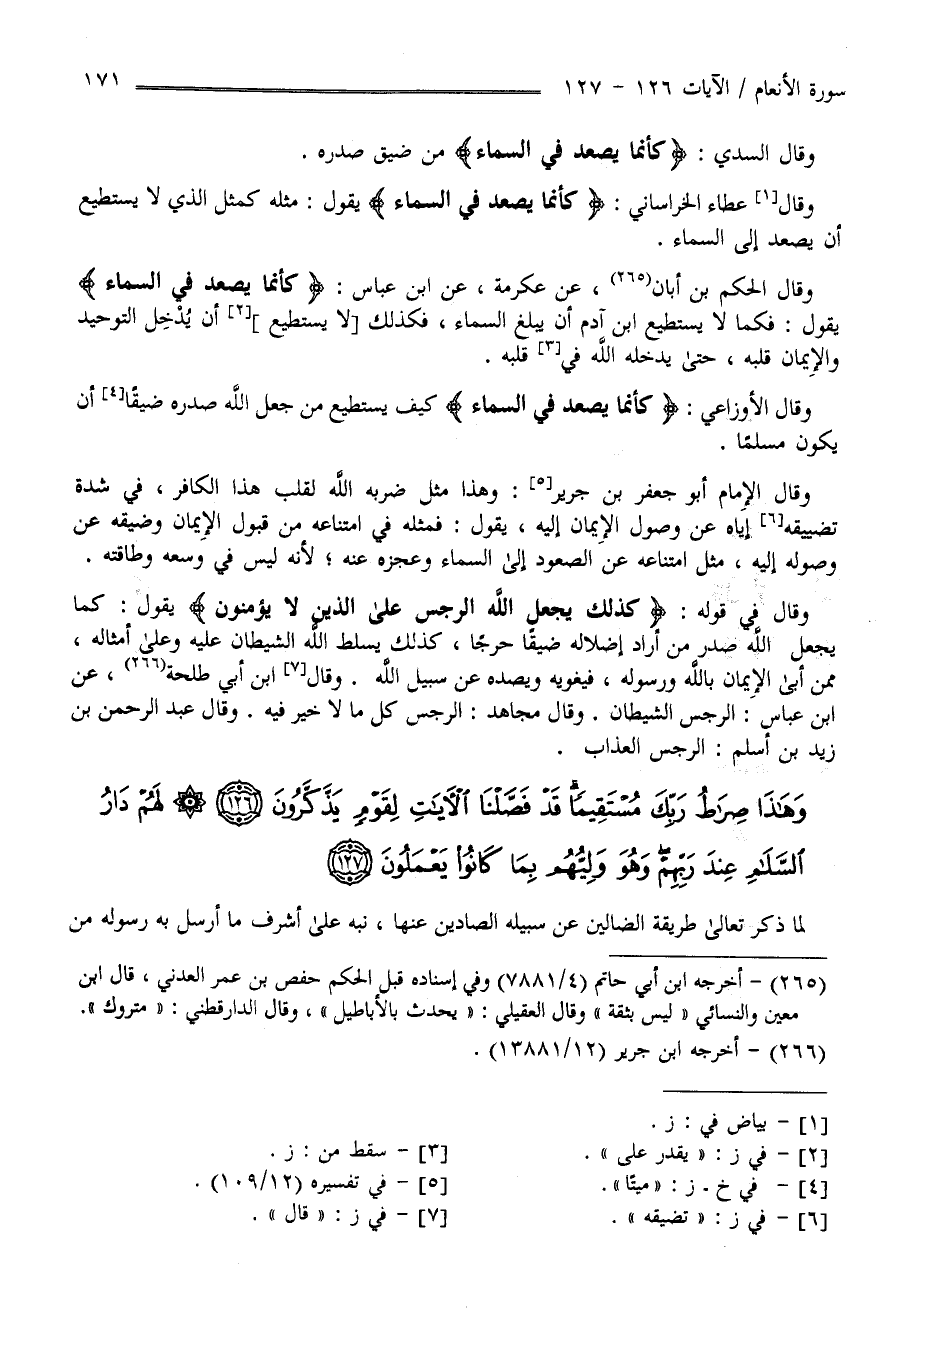 سورة الأنعام / الآيات ١٢٦ - ١٢٧ ١٧١
وقال السدي : ﴿ كأنما يصعد في السماء ﴾ من ضيق صدره .
وقال[١] عطاء الخراساني : ﴿ كأنما يصعد في السماء ﴾ يقول : مثله كمثل الذي لا يستطيع
أن يصعد إلى السماء .
وقال الحكم بن أبان(٢٦٥) ، عن عكرمة ، عن ابن عباس : ﴿ كأنما يصعد في السماء ﴾
يقول : فكما لا يستطيع ابن آدم أن يبلغ السماء ، فكذلك [لا يستطيع ][٢] أن يُدْخِل التوحيد
والإيمان قلبه ، حتىٰ يدخله اللَّه في[٣] قلبه .
وقال الأوزاعي : ﴿ كأنما يصعد في السماء ﴾ كيف يستطيع من جعل اللَّه صدره ضيقًا[٤] أن
يكون مسلمًا .
وقال الإمام أبو جعفر بن جرير[٥] : وهذا مثل ضربه اللَّه لقلب هذا الكافر ، في شدة
تضييقه[٦] إياه عن وصول الإيمان إليه ، يقول : فمثله في امتناعه من قبول الإيمان وضيقه عن
وصوله إليه ، مثل امتناعه عن الصعود إلىٰ السماء وعجزه عنه ؛ لأنه ليس في وسعه وطاقته .
وقال في قوله : ﴿ كذلك يجعل اللَّه الرجس علىٰ الذين لا يؤمنون ﴾ يقول : كما
يجعل اللَّه صدر من أراد إضلاله ضيقًا حرجًا ، كذلك يسلط اللَّه الشيطان عليه وعلىٰ أمثاله ،
ممن أبىٰ الإيمان باللَّه ورسوله ، فيغويه ويصده عن سبيل اللَّه . وقال[٧] ابن أبي طلحة(٢٦٦) ، عن
ابن عباس : الرجس الشيطان . وقال مجاهد : الرجس كل ما لا خير فيه . وقال عبد الرحمن بن
زيد بن أسلم : الرجس العذاب .
وَهَٰذَا صِرَٰطُ رَبِّكَ مُسْتَقِيمًا ۗ قَدْ فَصَّلْنَا ٱلْءَايَٰتِ لِقَوْمٍ يَذَّكَّرُونَ ١٢٦ ۞ لَهُمْ دَارُ
ٱلسَّلَٰمِ عِندَ رَبِّهِمْ ۖ وَهُوَ وَلِيُّهُم بِمَا كَانُوا۟ يَعْمَلُونَ ١٢٧
لما ذكر تعالىٰ طريقة الضالين عن سبيله الصادين عنها ، نبه علىٰ أشرف ما أرسل به رسوله من
(٢٦٥) - أخرجه ابن أبي حاتم (٧٨٨١/٤) وفي إسناده قبل الحكم حفص بن عمر العدني ، قال ابن
معين والنسائي « ليس بثقة » وقال العقيلي : « يحدث بالأباطيل » ، وقال الدارقطني : « متروك ».
(٢٦٦) - أخرجه ابن جرير (١٣٨٨١/١٢) .
[١] - بياض في : ز .
[٢] - في ز : « يقدر على » . [٣] - سقط من : ز .
[٤] - في خ ، ز : «ميتًا». [٥] - في تفسيره (١٠٩/١٢) .
[٦] - في ز : « تضيقه » . [٧] - في ز : « قال » .